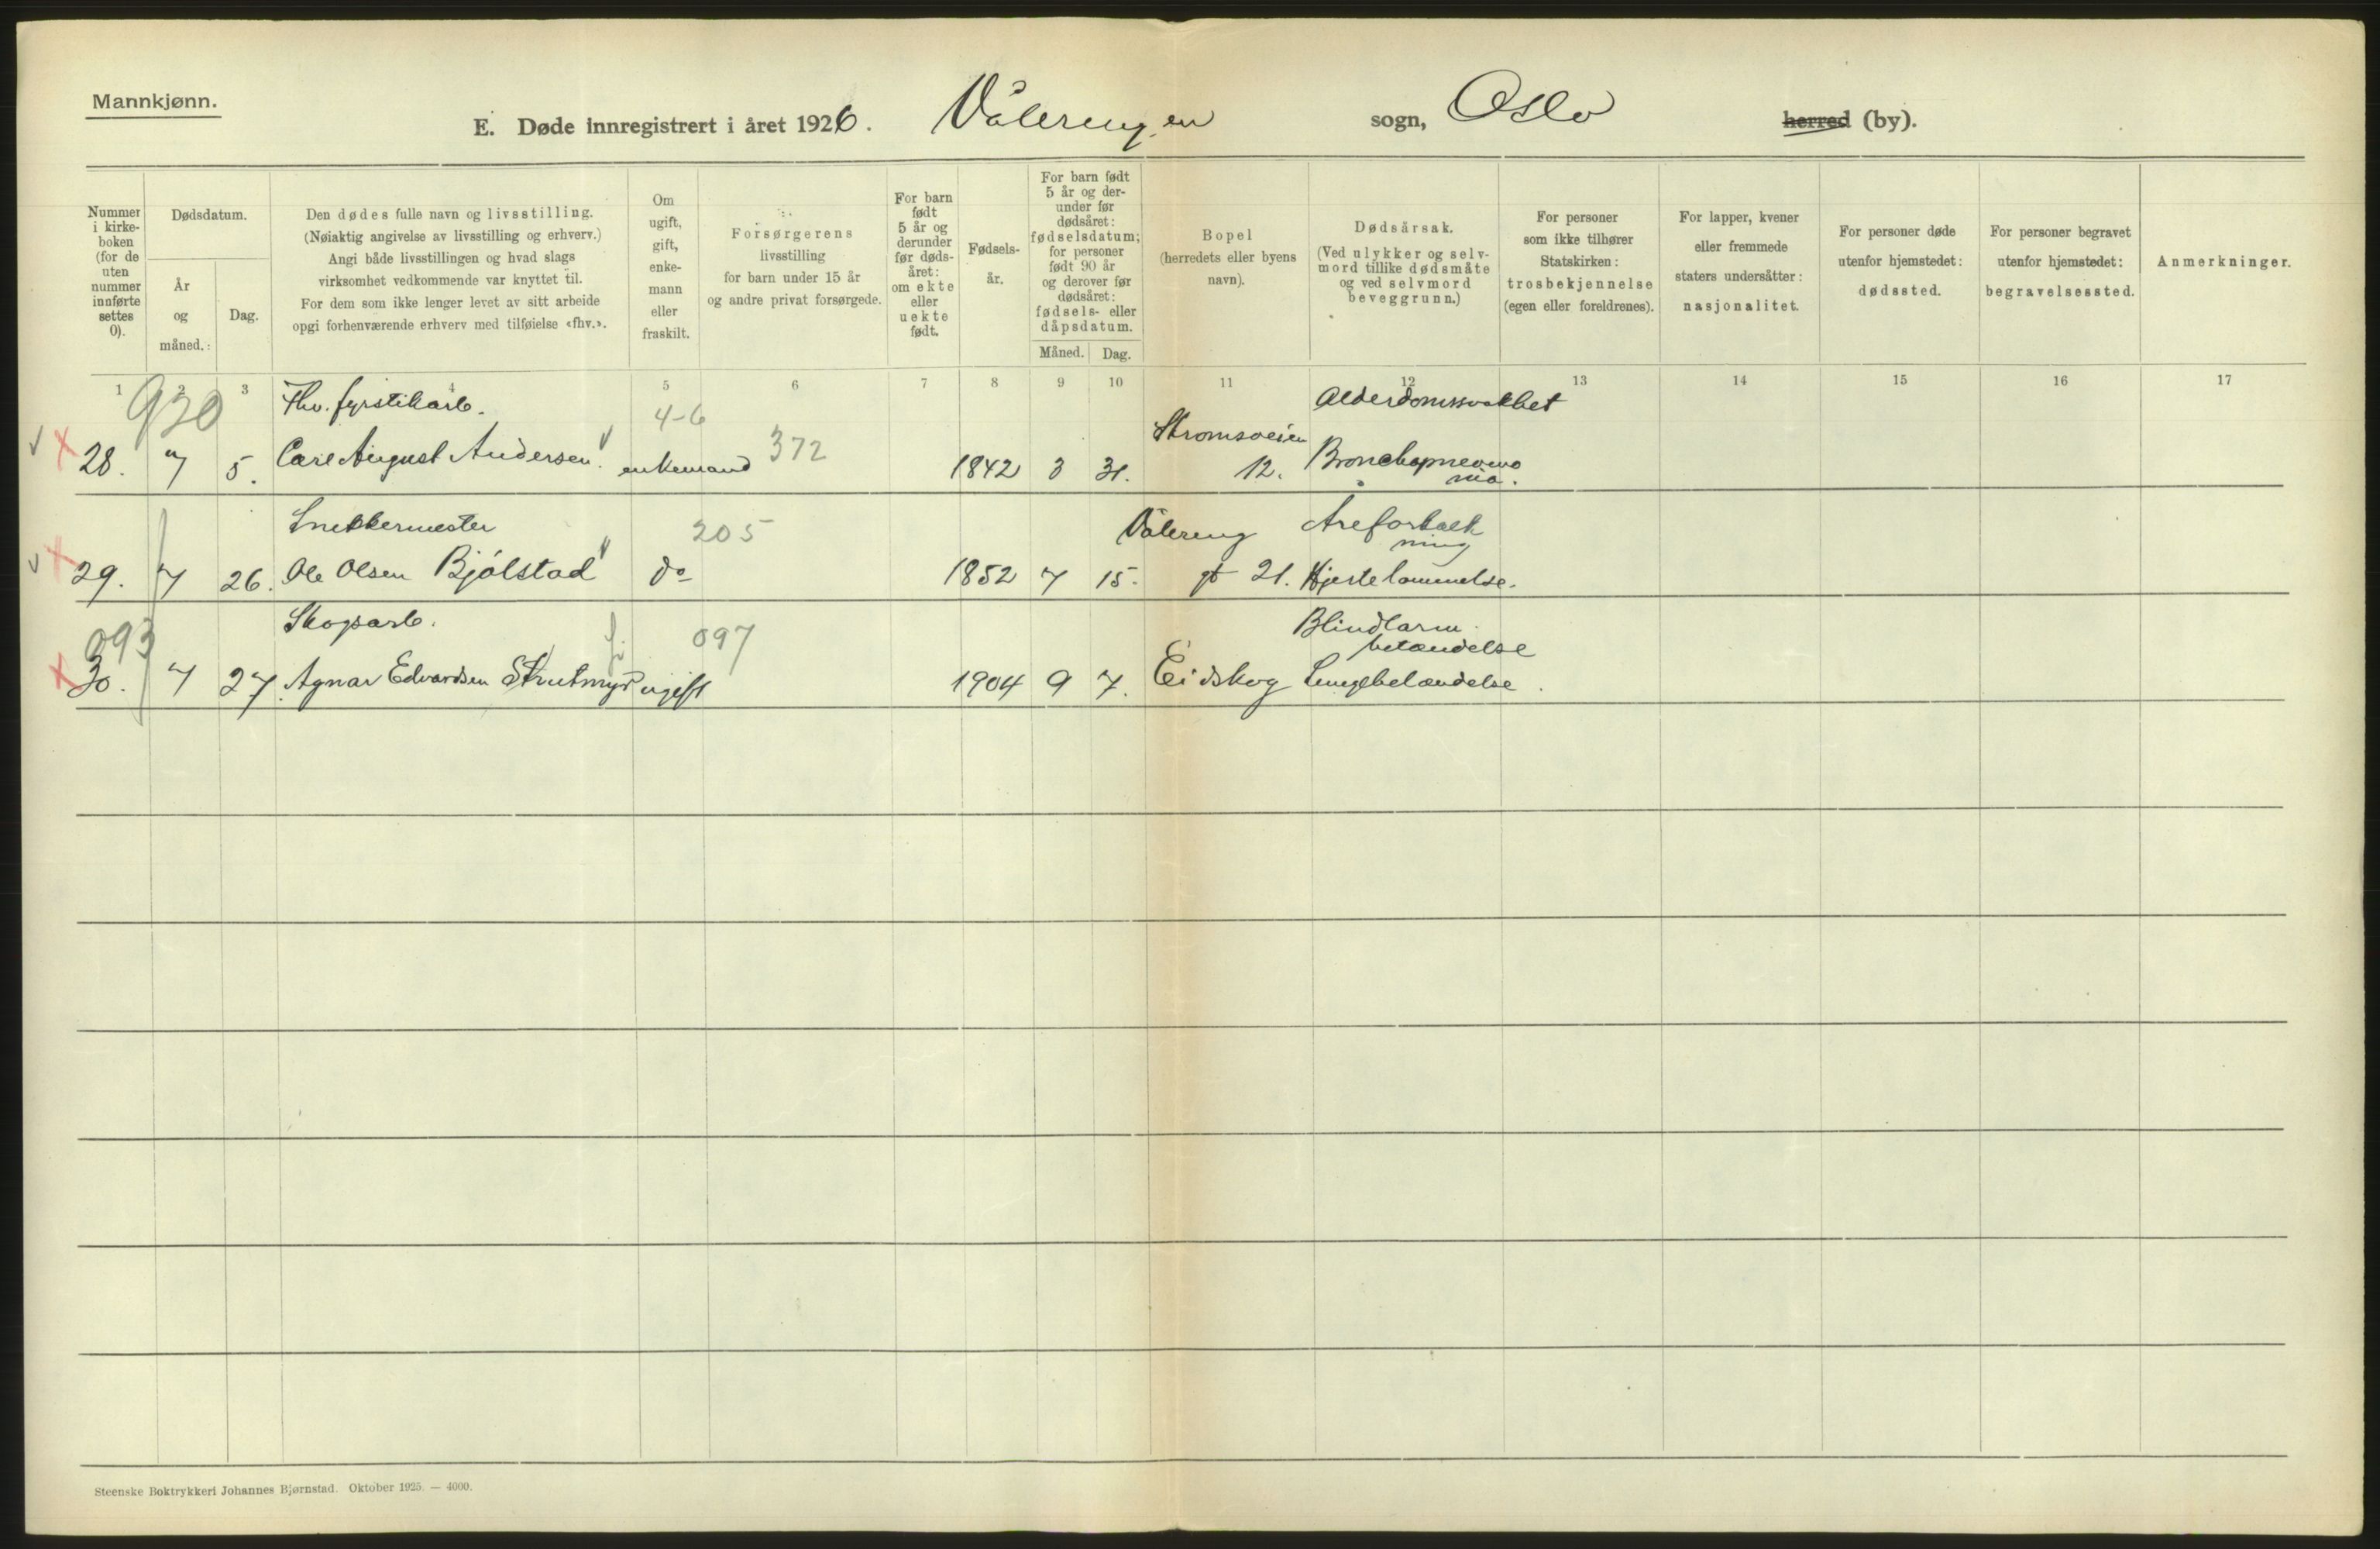 Mannkjønn.
E. Døde innregistrert i året 1926. Våleringen sogn, Oslo herred (by).
Nummer i kirke-boken (for de uten nummer innførte settes 0).
Dødsdatum.
År og måned.
Dag.
Den dødes fulle navn og livsstilling.
(Nøiaktig angivelse av livsstilling og erhverv.)
Angi både livsstillingen og hvad slags
virksomhet vedkommende var knyttet til.
For dem som ikke lenger levet av sitt arbeide
opgi forhenværende erhverv med tilføielse «fhv.».
Om ugift, gift, enke-mann eller fraskilt.
Forsørgerens
livsstilling
for barn under 15 år
og andre privat forsørgede.
For barn født 5 år og derunder før døds-året: om ekte eller uekte født.
Fødsels-år.
For barn født 5 år og der-under før dødsåret: fødselsdatum; for personer født 90 år og derover før dødsåret: fødsels- eller dåpsdatum.
Måned. Dag.
Bopel
(herredets eller byens
navn).
Dødsårsak.
(Ved ulykker og selv-
mord tillike dødsmåte
og ved selvmord
beveggrunn.)
For personer
som ikke tilhører
Statskirken:
trosbekjennelse
(egen eller foreldrenes).
For lapper, kvener
eller fremmede
staters undersåtter:
nasjonalitet.
For personer døde
utenfor hjemstedet:
dødssted.
For personer begravet
utenfor hjemstedet:
begravelsessted.
Anmerkninger.
1 2 3 4 5 6 7 8 9 10 11 12 13 14 15 16 17
930 Fhv. fyrstikarb. 4-6 Alderdomssvakhet
28. 7 5. Carl August Andersen. enkemand 372 1842 3 31. Strømsveien 12. Bronchopneumonia.
Snekkermester 205 Vålereng Areforkalkning
29. 7 26. Ole Olsen Bjølstad do 1852 7 15. gt 21. Hjertelammelse.
093 Skogsarb. 097 Blindtarmbetændelse
30. 7 27. Agnar Edvardsen Strutmyr ugift 1904 9 7. Eidskog Lungebetændelse.
Steenske Boktrykkeri Johannes Bjørnstad. Oktober 1925. — 4000.